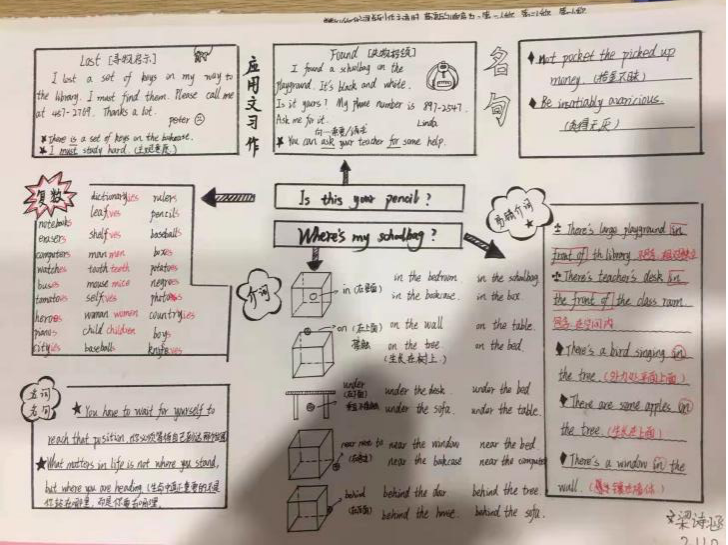 Lost [寻物启示]
I lost a set of keys on my way to
the library. I must find them. Please call me
at 487-2769. Thanks a lot.
peter
★There is a set of keys on the bookcase.
★I must study hard. (主观意愿)
应用文习作
Found [失物招领]
I found a schoolbag on the
playground. It's black and white.
Is it yours? My phone number is 897-2547.
Ask me for it.
Linda
★You can ask your teacher for some help.
名句
Not pocket the picked up
money. (拾金不昧)
Be insatiably avaricious.
(贪得无厌)
Is this your pencil?
Where's my schoolbag?
复数
notebooks
erasers
computers
watches
buses
tomatoes
heroes
pianos
cityies
dictionaryies
leafves
shelfves
man men
tooth teeth
mouse mice
selfves
woman women
child children
baseballs
rulers
pencils
baseballs
boxes
potatoes
negroes
photos
countryies
boys
knifeves
介词
in (在里面)
in the bedroom
in the schoolbag
in the bookcase.
in the box.
on (在上面)
on the wall
on the table.
on the tree
on the bed.
(生长在树上.)
under
(在下面)
under the desk.
under the bed
under the sofa.
under the table.
near next to
near the window
near the bed
near the bookcase
near the computer
behind
(在后面)
behind the door
behind the tree.
behind the house.
behind the sofa.
易错介词
There's large playground in
front of th library.
There's teacher's desk in
the front of the class room.
There's a bird singing in
the tree. (外力处来在上面)
There are some apples on
the tree. (生长在上面)
There's a window in the
wall.
名词
名句
★You have to wait for yourself to
reach that position.
★What matters in life is not where you stand,
but where you are heading (生命中最重要的不是
你站在哪里,而是你要去哪里.
梁诗涵